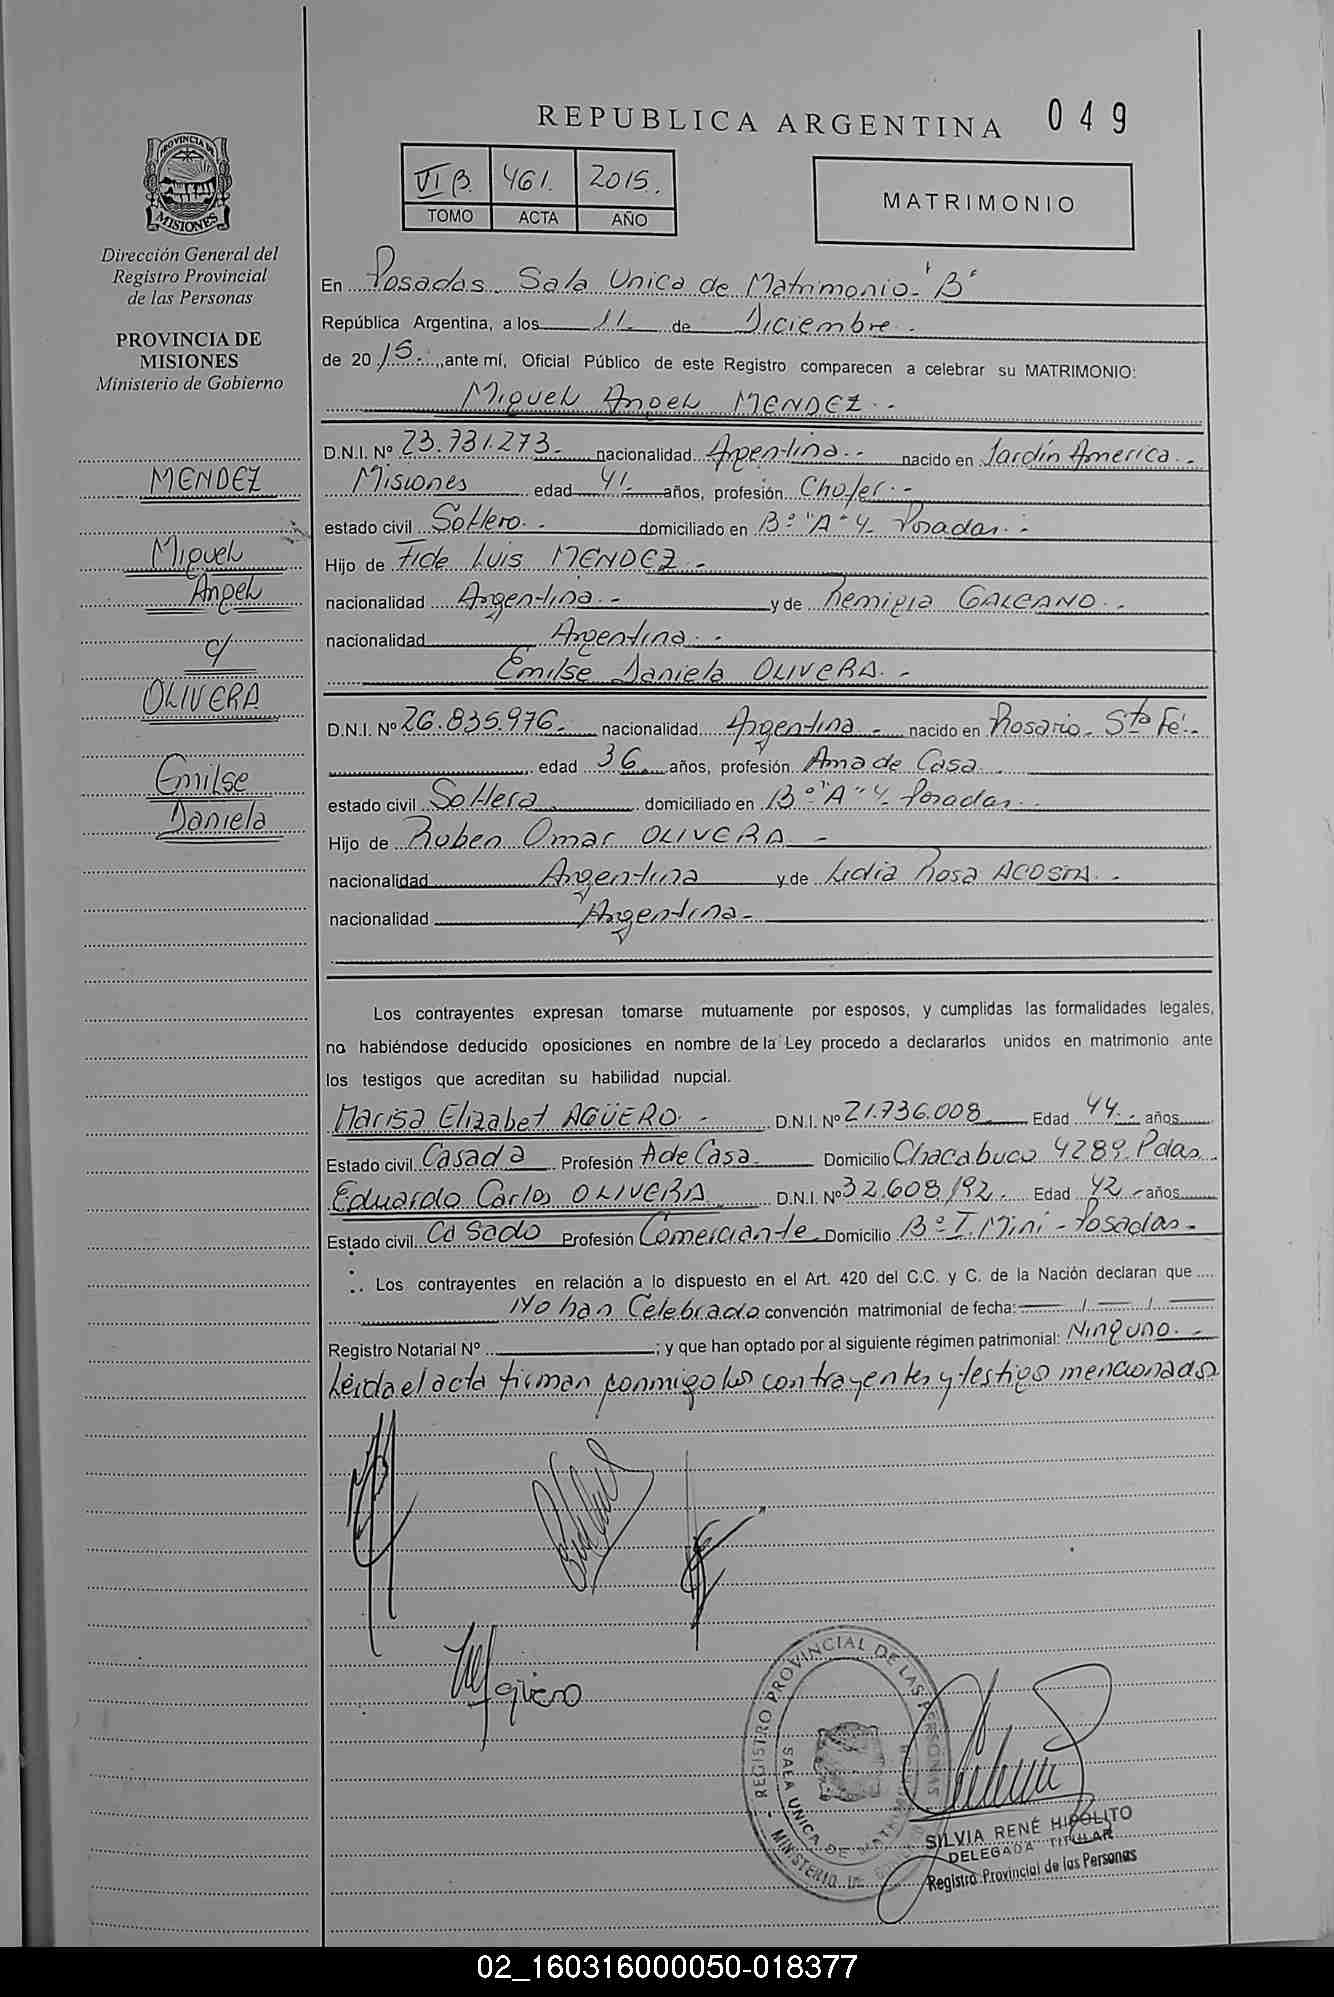 REPUBLICA ARGENTINA 049
PROVINCIA DE
MISIONES
Dirección General del
Registro Provincial
de las Personas
PROVINCIA DE
MISIONES
Ministerio de Gobierno
MENDEZ
Miguel
Angel
c/
OLIVERA
Emilse
Daniela
VI B. 461. 2015.
TOMO ACTA AÑO
MATRIMONIO
En Posadas. Sala Unica de Matrimonio "B"
República Argentina, a los 11 de Diciembre.
de 2015., ante mí, Oficial Público de este Registro comparecen a celebrar su MATRIMONIO:
Miguel Angel MENDEZ.-
D.N.I. Nº 23.731.273.- nacionalidad Argentina.- nacido en Jardín America.-
Misiones edad 41 años, profesión Chofer.-
estado civil Soltero.- domiciliado en Bº "A" 4 Posadas.-
Hijo de Fide Luis MENDEZ.-
nacionalidad Argentina.- y de Remigia GALEANO.-
nacionalidad Argentina.-
Emilse Daniela OLIVERA.-
D.N.I. Nº 26.835.976.- nacionalidad Argentina.- nacido en Rosario - Sta Fé.-
edad 36 años, profesión Ama de Casa.
estado civil Soltera. domiciliado en Bº "A" 4 Posadas.
Hijo de Ruben Omar OLIVERA.-
nacionalidad Argentina y de Lidia Rosa ACOSTA.-
nacionalidad Argentina.-
Los contrayentes expresan tomarse mutuamente por esposos, y cumplidas las formalidades legales,
no habiéndose deducido oposiciones en nombre de la Ley procedo a declararlos unidos en matrimonio ante
los testigos que acreditan su habilidad nupcial.
Marisa Elizabet AGÜERO.- D.N.I. Nº 21.736.008 Edad 44.- años
Estado civil Casada Profesión A de Casa. Domicilio Chacabuco 4289. Pdas.
Eduardo Carlos OLIVERA D.N.I. Nº 32.608.192.- Edad 42.- años
Estado civil Casado Profesión Comerciante. Domicilio Bº I. Mini - Posadas.-
Los contrayentes en relación a lo dispuesto en el Art. 420 del C.C. y C. de la Nación declaran que ....
No han Celebrado convención matrimonial de fecha: / /
Registro Notarial Nº ; y que han optado por al siguiente régimen patrimonial: Ninguno.-
Leida el acta firman conmigo los contrayentes y testigo mencionados
Agüero
REGISTRO PROVINCIAL DE LAS PERSONAS
SALA UNICA DE MATRIMONIO
MINISTERIO DE GOBIERNO
SILVIA RENÉ HIPOLITO
DELEGADA TITULAR
Registro Provincial de las Personas
02_160316000050-018377